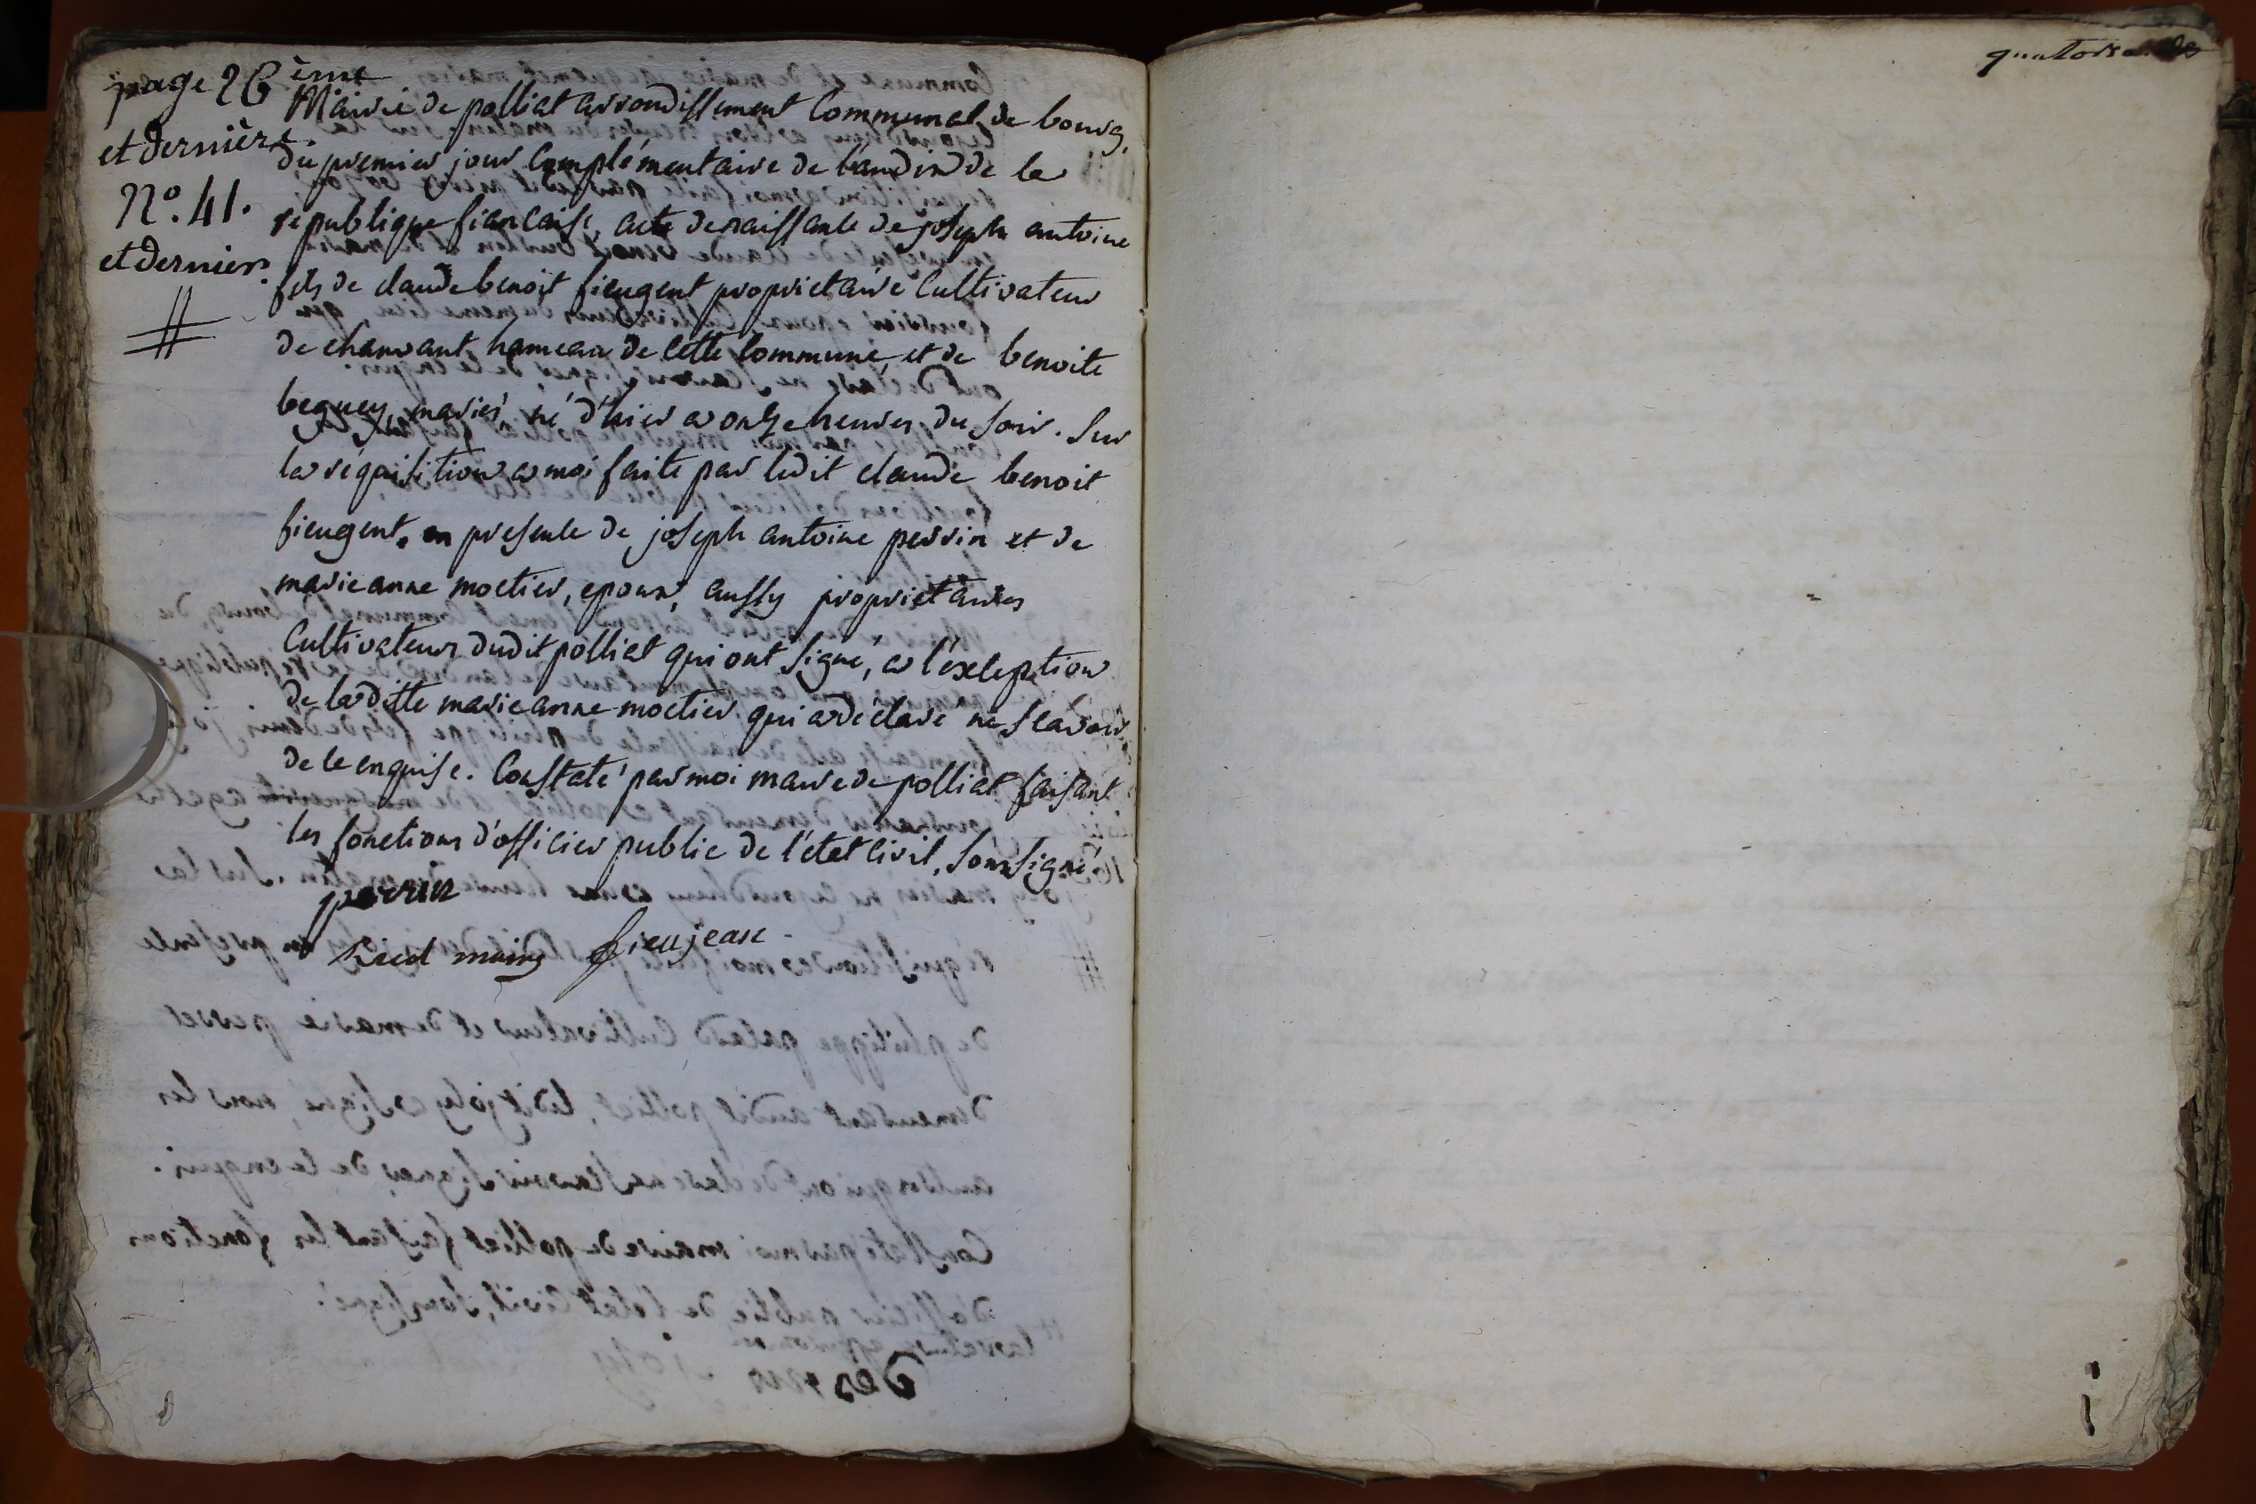 page 26ème
et dernière.
No. 41.
et dernier.
Mairie de polliat arrondissement Communal de bourg,
du premier jour Complémentaire de l'an dix de la
république francaise, acte de naissance de joseph antoine
fils de claude benoit fieugent proprietaire Cultivateur
de chanvant hameau de cette Commune, et de benoite
beguey mariés, né d'hier a onze heures du soir. Sur
la réquisition a moi faite par ledit claude benoit
fieugent. en presence de joseph antoine perrin et de
marie anne moctier, epoux, aussy proprietaires
Cultivateurs dudit polliat qui ont signé, a l'exception
de la ditte marie anne moctier qui a déclaré ne scavoir
de ce enquise. Constaté par moi maire de polliat faisant
les fonctions d'officier public de l'état civil, soussigné.
perrin
maire fieujean
quatorze